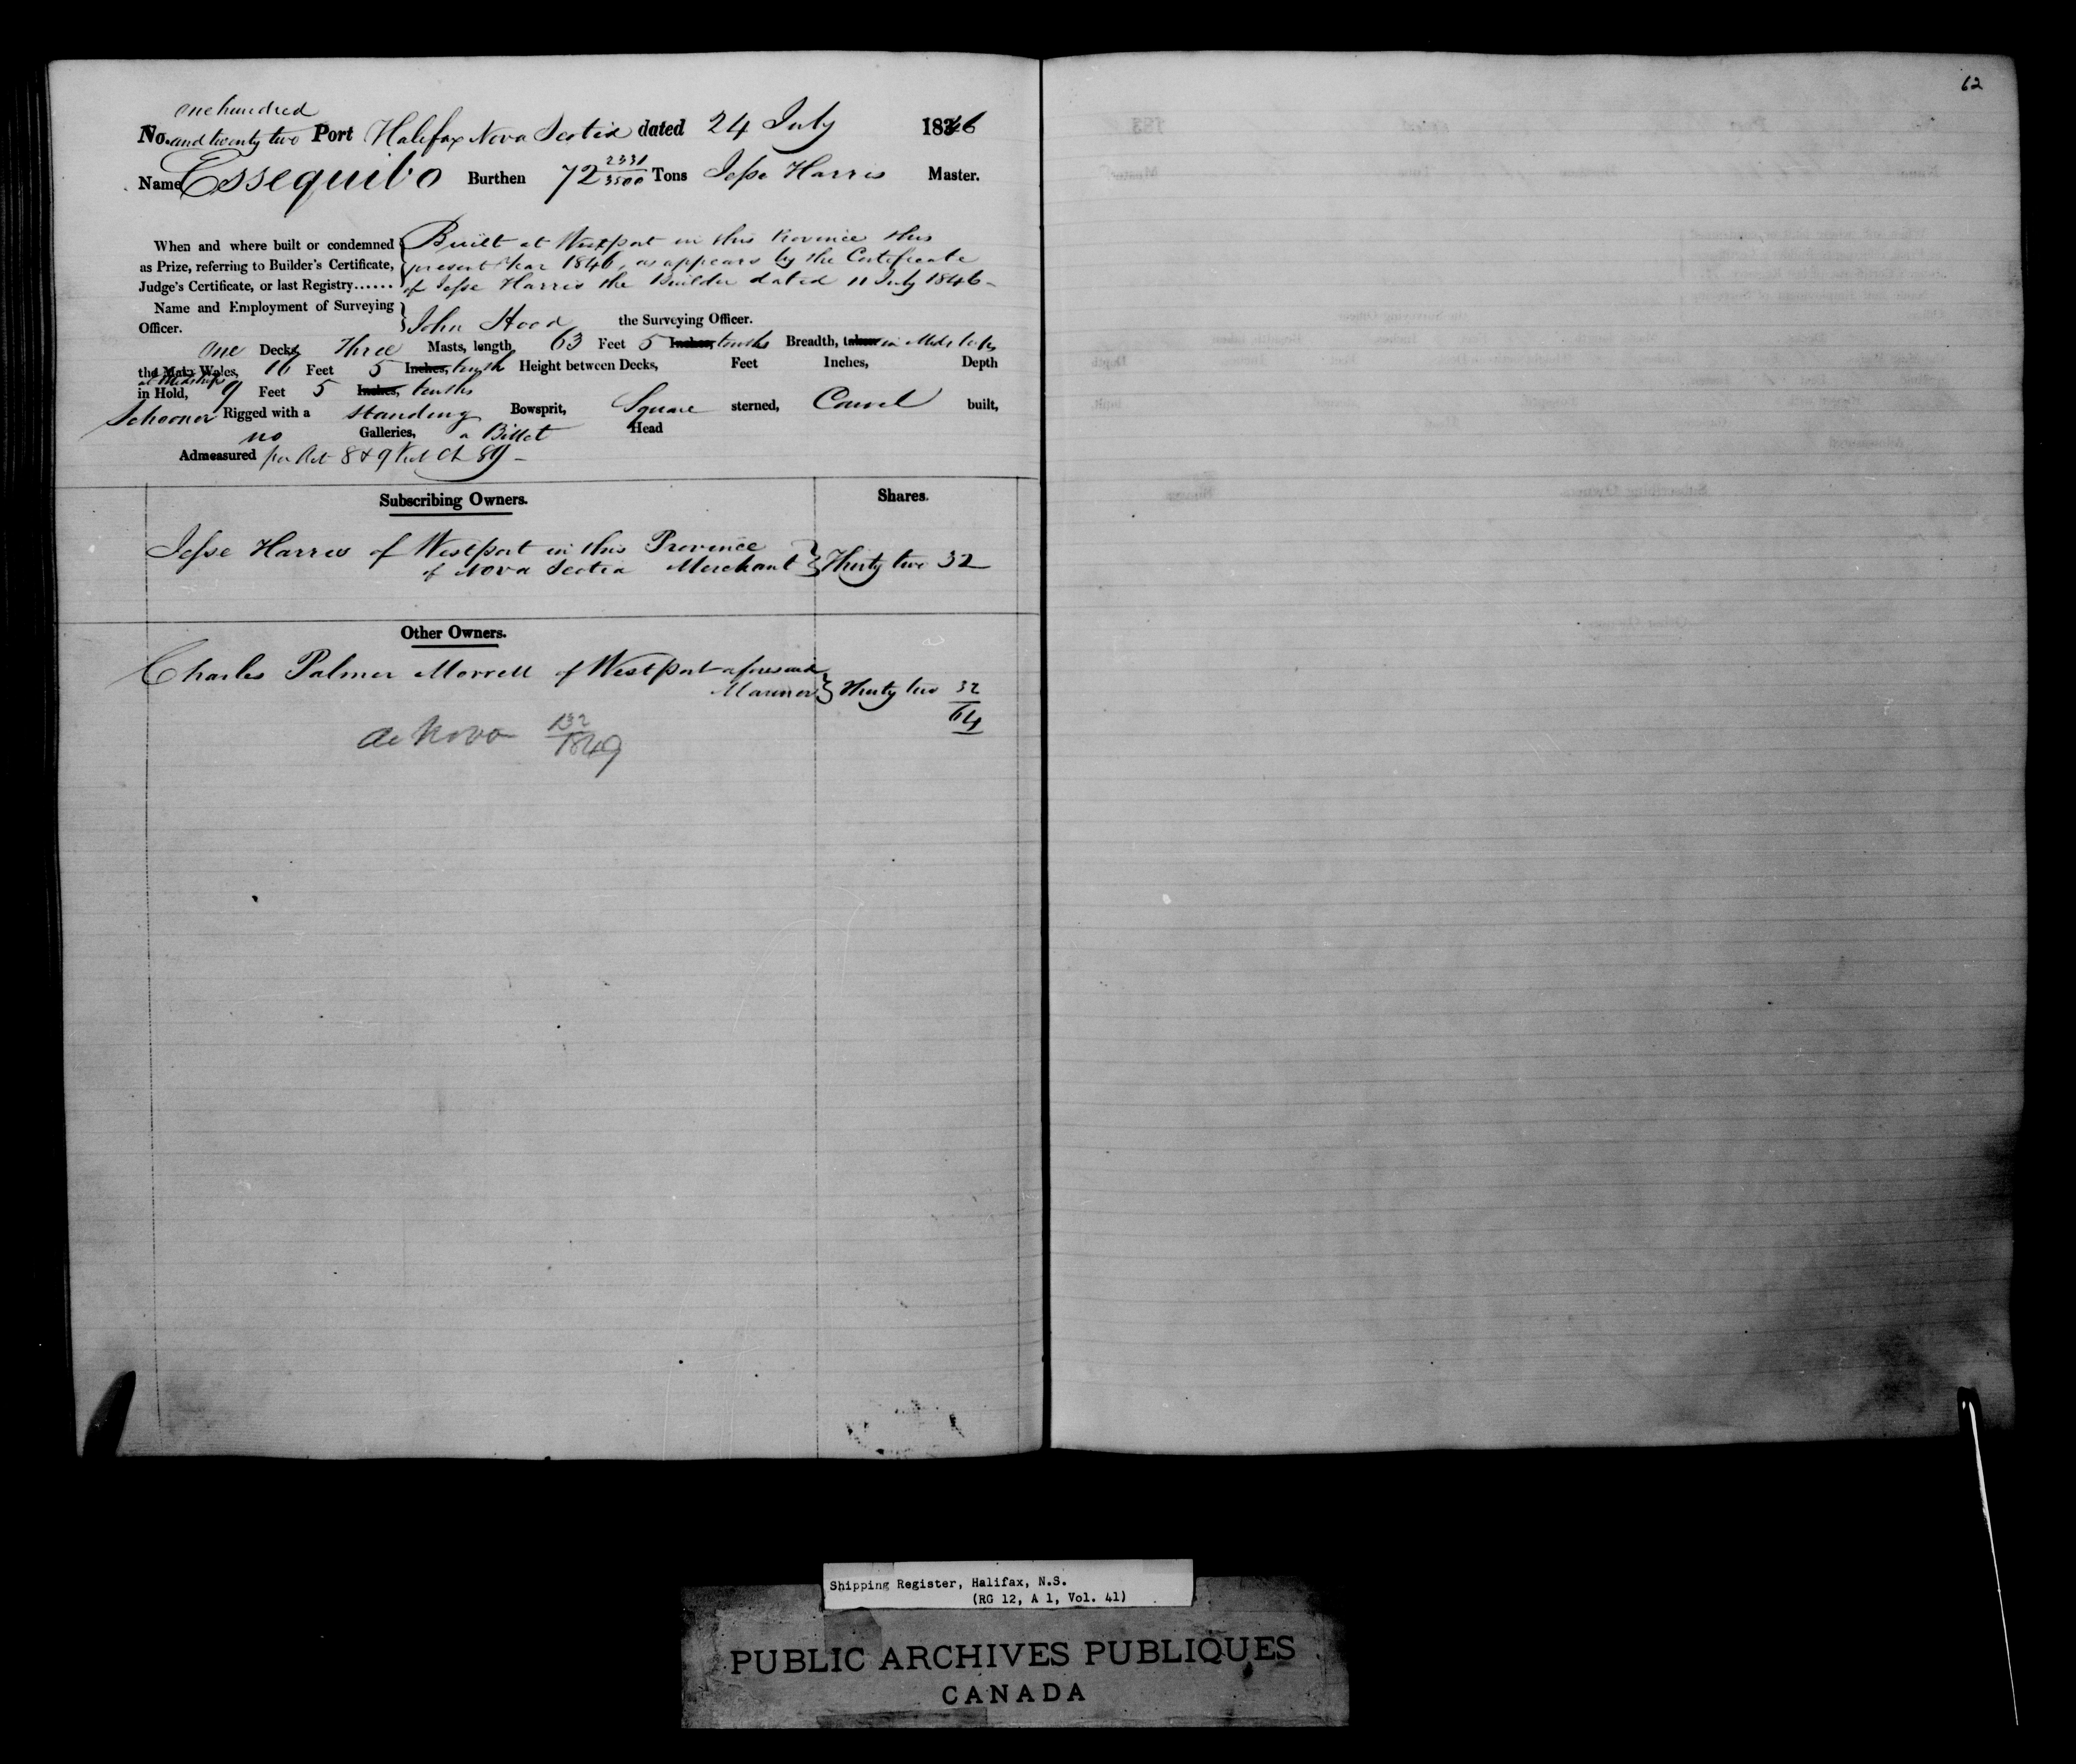 62
one hundred
No. and twenty two Port Halifax Nova Scotia dated 24 July 1846
Name Essequibo Burthen 72 2331/3500 Tons Jesse Harris Master.
When and where built or condemned as Prize, referring to Builder's Certificate, Judge's Certificate, or last Registry......
Built at Westport in this Province this
present Year 1846, as appears by the Certificate
of Jesse Harris the Builder dated 11 July 1846-
Name and Employment of Surveying Officer.
John Hood the Surveying Officer.
One Decks Three Masts, length 63 Feet 5 Inches, tenths Breadth, taken in Midships
the Main Wales, 16 Feet 5 Inches, tenths Height between Decks, Feet Inches, Depth
at Midships
in Hold, 9 Feet 5 Inches, tenths
Schooner Rigged with a standing Bowsprit, Square sterned, Carvel built,
no Galleries, a Billet Head
Admeasured per Act 8 & 9 Vict Ch 89-
Subscribing Owners. Shares.
Jesse Harris of Westport in this Province
of Nova Scotia Merchant Thirty two 32
Other Owners.
Charles Palmer Morrell of Westport aforesaid
Mariner Thirty two 32
64
de Novo 132/1849
Shipping Register, Halifax, N.S.
(RG 12, A 1, Vol. 41)
PUBLIC ARCHIVES PUBLIQUES
CANADA